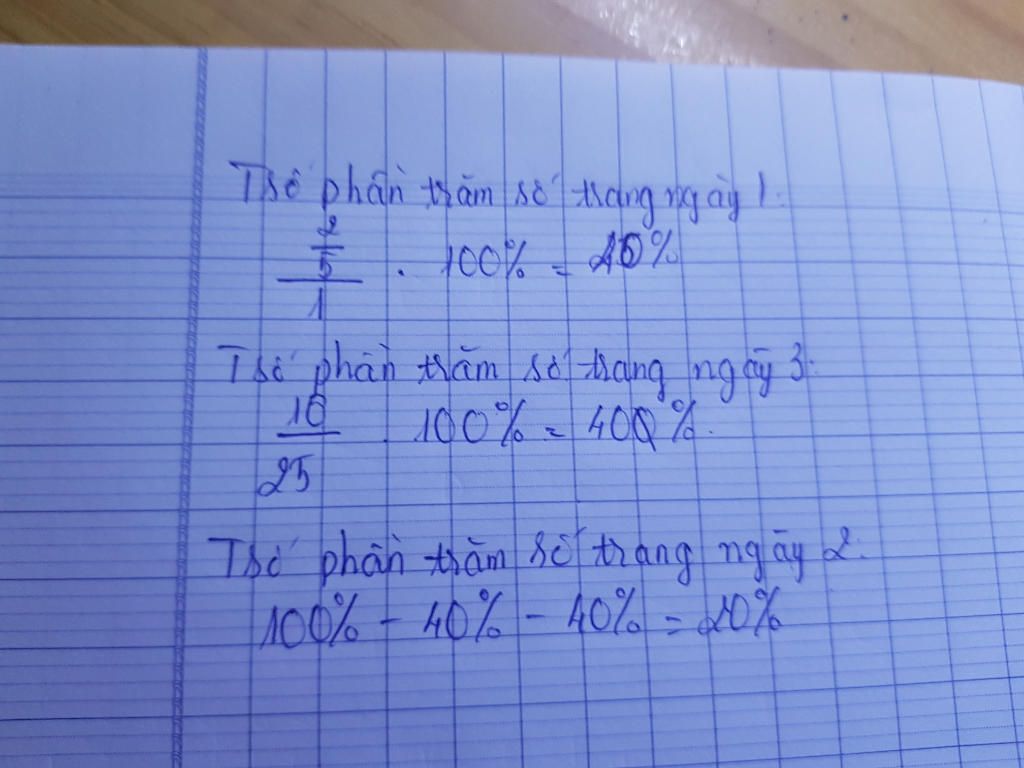 Tsố phần trăm số trang ngày 1:
2
5
1
. 100% = 40%
Tsố phần trăm số trang ngày 3:
10
25
. 100% = 400%.
Tsố phần trăm số trang ngày 2:
100% - 40% - 40% = 20%